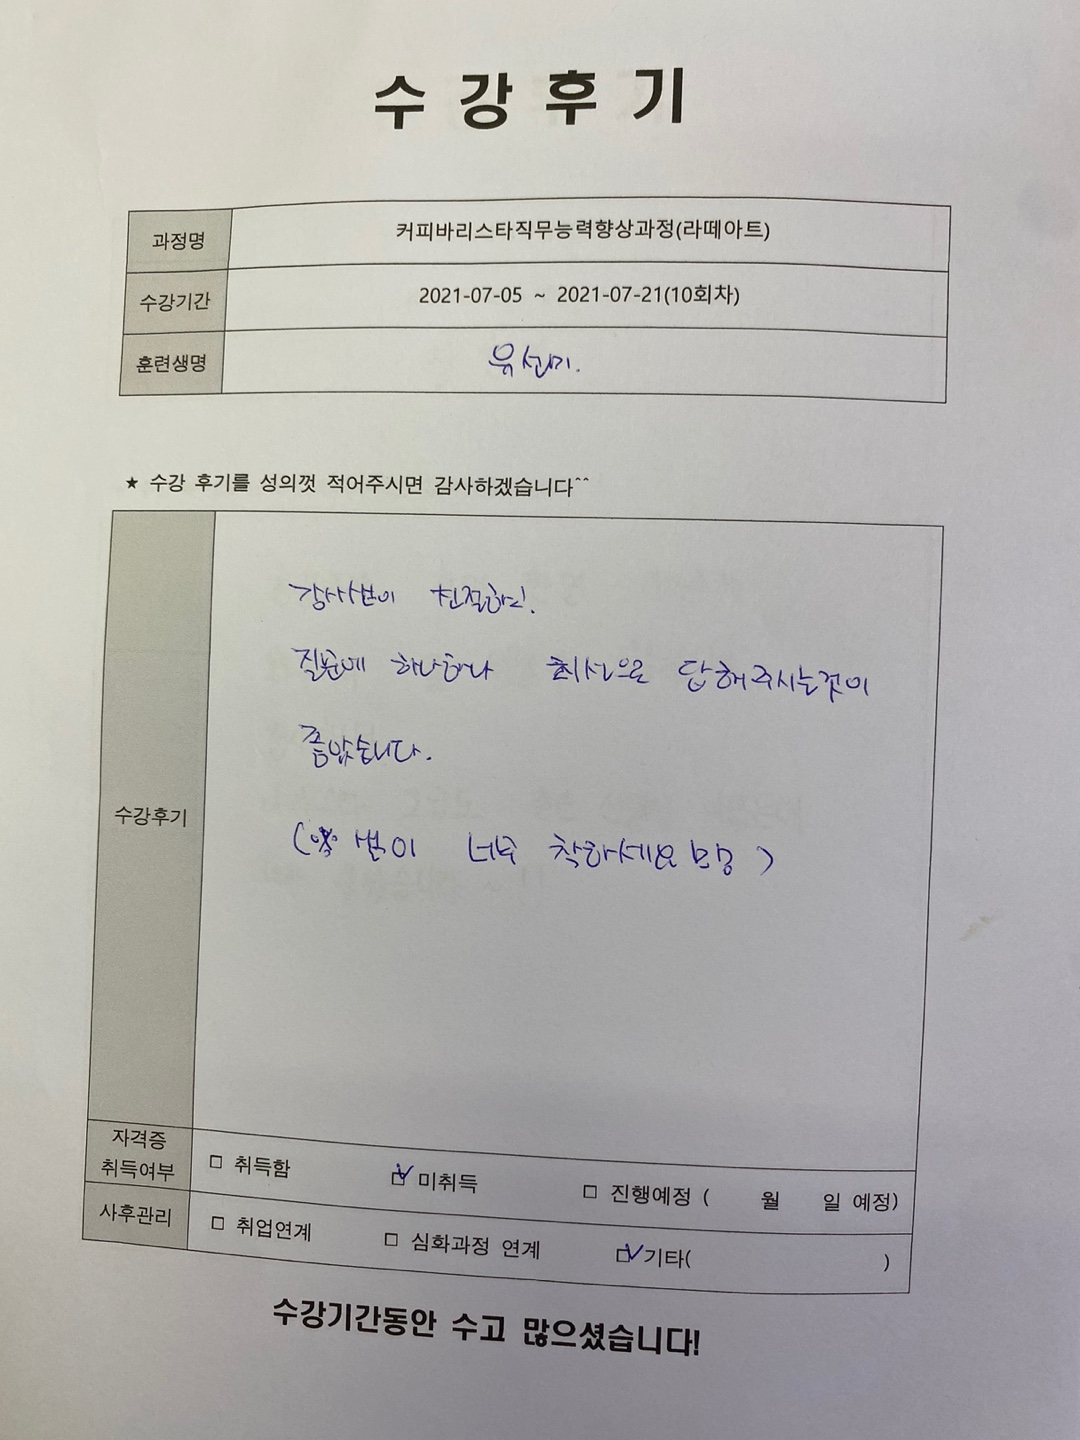 수강후기
과정명 커피바리스타직무능력향상과정(라떼아트)
수강기간 2021-07-05 ~ 2021-07-21(10회차)
훈련생명 유선미.
★ 수강 후기를 성의껏 적어주시면 감사하겠습니다^^
수강후기
강사분이 친절하고!
질문에 하나하나 최선으로 답해주시는것이
좋았습니다.
( 분이 너무 착하세요 )
자격증 취득여부 □ 취득함 ☑ 미취득 □ 진행예정 ( 월 일 예정)
사후관리 □ 취업연계 □ 심화과정 연계 ☑ 기타( )
수강기간동안 수고 많으셨습니다!